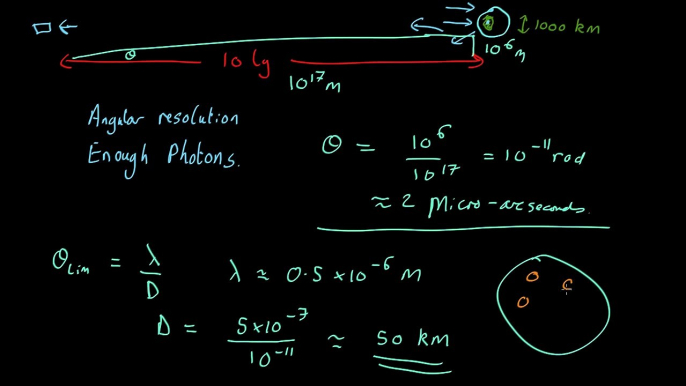 1000 km
10⁶m
θ
10 ly
10¹⁷m
Angular resolution
Enough Photons.
θ = 10⁶ / 10¹⁷ = 10⁻¹¹ rad
≈ 2 Micro-arcseconds.
θLim = λ / D
λ ≈ 0.5 × 10⁻⁶ M
D = 5×10⁻⁷ / 10⁻¹¹ ≈ 50 km